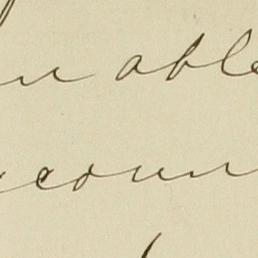 n able
ccoun